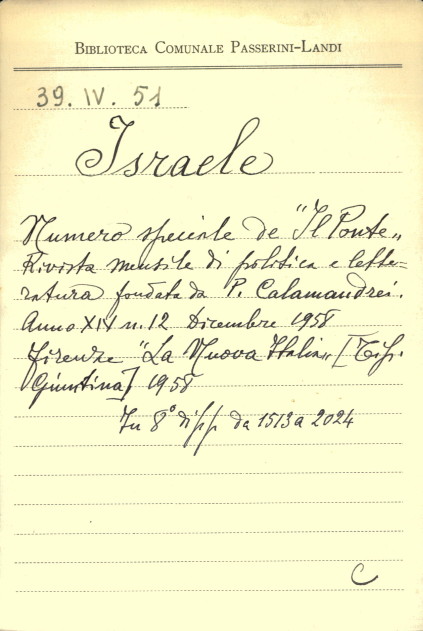 BIBLIOTECA COMUNALE PASSERINI-LANDI
39. IV. 51
Israele
Numero speciale de "Il Ponte„
Rivista mensile di politica e lette-
ratura fondata da P. Calamandrei.
Anno XIV n. 12 Dicembre 1958
Firenze "La Nuova Italia„ [Tip.
Giuntina] 1958
In 8° di pp. da 1513 a 2024
C